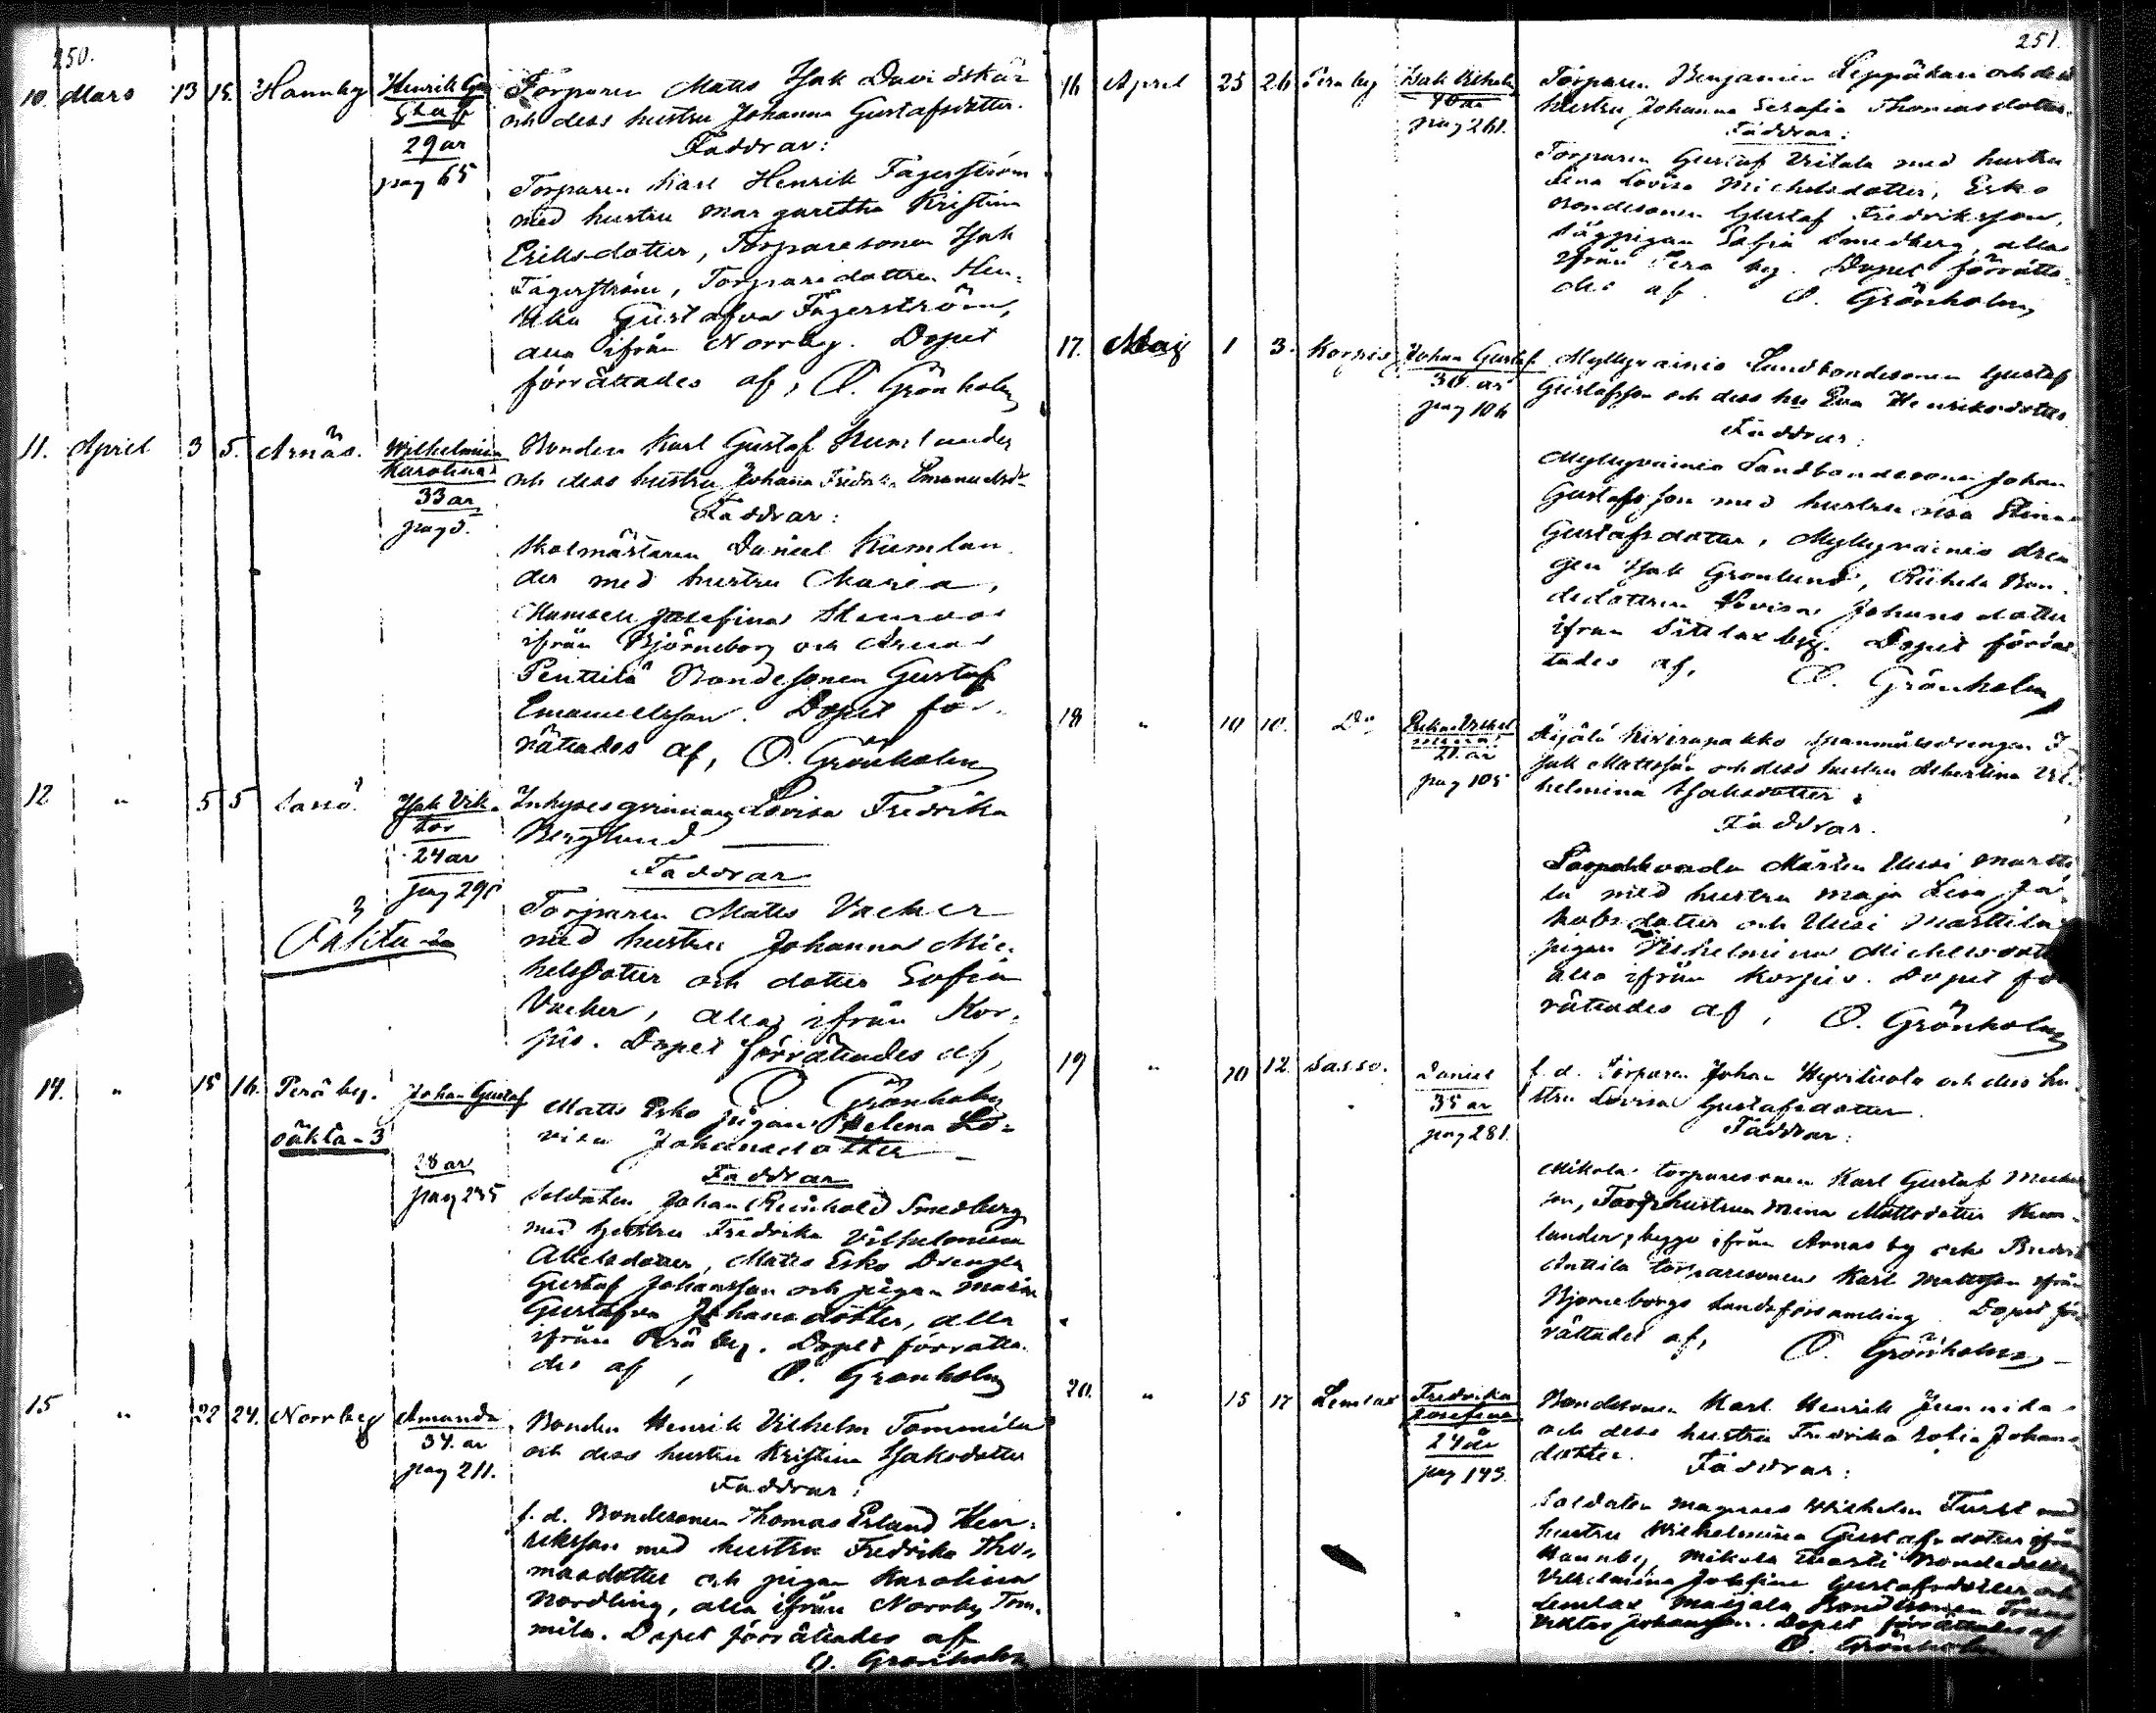 250.
10. Mars 13 15. Hannby Henrik Gu
staf
29 år
pag 65
Torparen Matts Isak Davidskär
och dess hustru Johanna Gustafsdotter.
Faddrar:
Torparen Karl Henrik Fagerström
med hustru Margaretha Kristina
Eriksdotter, Torparesonen Isak
Fagerström, Torparedottren Hen-
rika Gustafva Fagerström,
alla ifrån Norrby. Dopet
förrättades af, O. Grönholm
11. April 3 5. Arnäs. Wilhelmina
Karolina
33 år
pag 5.
Bonden Karl Gustaf Kumlander
och dess hustru Johanna Fredrika Emanuelsd:
Faddrar:
Skolmästaren Daniel Kumlan
der med hustru Maria,
Mamsell Josefina
ifrån Björneborg och Arnäs
Penttilä Bondesonen Gustaf
Emanuelsson. Dopet för-
rättades af, O. Grönholm
12 " 5 5 Sassö. Isak Vik-
tor
24 år
pag 295
Oäkta 2
Inhyses qvinnan Lovisa Fredrika
Berglund
Faddrar
Torparen Matts Vacker
med hustru Johanna Mic-
helsdotter och dotter Sofia
Vacker, alla ifrån Kor-
pis. Dopet förrättades af,
O. Grönholm
14. " 15 16. Perä by. Johan Gustaf
oäkta-3
28 år
pag 235
Matts Esko pigan Helena Lo-
visa Johansdotter
Faddrar
Soldaten Johan Reinhold Smedberg
med hustru Fredrika Vilhelmina
Abelsdotter, Matts Esko Drengen
Gustaf Johansson och pigan Maria
Gustafva Johansdotter, alla
ifrån Perä by. Dopet förrätta-
des af, O. Grönholm
15 " 22 24. Norrby Amanda
34. år
pag 211.
Bonden Henrik Vilhelm Tommila
och dess hustru Kristina Isaksdotter
Faddrar:
f. d. Bondesonen Thomas Erland Hen-
riksson med hustru Fredrika Tho-
masdotter och pigan Karolina
Nordling, alla ifrån Norrby Tom-
mila. Dopet förrättades af
O. Grönholm
251.
16 April 25 26 Perä by Isak Vilhelm
40 år
pag 261.
Torparen Benjamin Leppäkari och dess
hustru Johanna Serafia Thomasdotter.
Faddrar:
Torparen Gustaf Vitala med hustru
Lena Lovisa Michelsdotter, Esko
Bondesonen Gustaf Fredriksson,
Sågpigan Sofia Smedberg, alla
ifrån Perä by. Dopet förrätta-
des af O. Grönholm,
17. Maj 1 3. Korpis Johan Gustaf
30. år
pag 106
Myllyvainio Landbondesonen Gustaf
Gustafsson och dess hu Eva Henriksdotter
Faddrar:
Myllyvainio Landbondesonen Johan
Gustafsson med hustru Stina
Gustafsdotter, Myllyvainio dren
gen Isak Grönlund, Bon-
dedottren Lovisa Johansdotter
ifrån Sättlax by. Dopet förrät-
tades af, O. Grönholm,
18 " 10 10. Do
21. år
pag 105
Äijälä Spanmålsdrengen I-
sak Mattsson och dess hustru Albertina Vil-
helmina Isaksdotter.
Faddrar.
Mårten Uusi Martti
la med hustru Maja Lisa Ja-
kobsdotter och Uusi Marttila
pigan Vilhelmina Michelsdotter
alla ifrån Korpis. Dopet för
rättades af, O. Grönholm
19 " 10 12. Sasso. Daniel
35 år
pag 281.
f. d. Torparen Johan och dess hu-
stru Lovisa Gustafsdotter.
Faddrar:
Mikola torparesonen Karl Gustaf
son, Torphustrun Mina Mattsdotter Kum-
lander, bägge ifrån Arnäs by och
Anttila torparesonen Karl Mattsson ifrån
Björneborgs Landsförsamling. Dopet för-
rättades af, O. Grönholm
20. " 15 17 Lemlax Fredrika
Josefina
24 år
pag 143.
Bondesonen Karl Henrik Junnila
och dess hustru Fredrika Sofia Johans-
dotter. Faddrar:
Soldaten Magnus Wilhelm Turst med
hustru Wilhelmina Gustafsdotter ifrån
Hannby, Mikola Bondedottren
Vilhelmina Josefina Gustafsdotter och
Lemlax Maijala Bondesonen Frans
Viktor Johansson. Dopet förrättades af
O. Grönholm